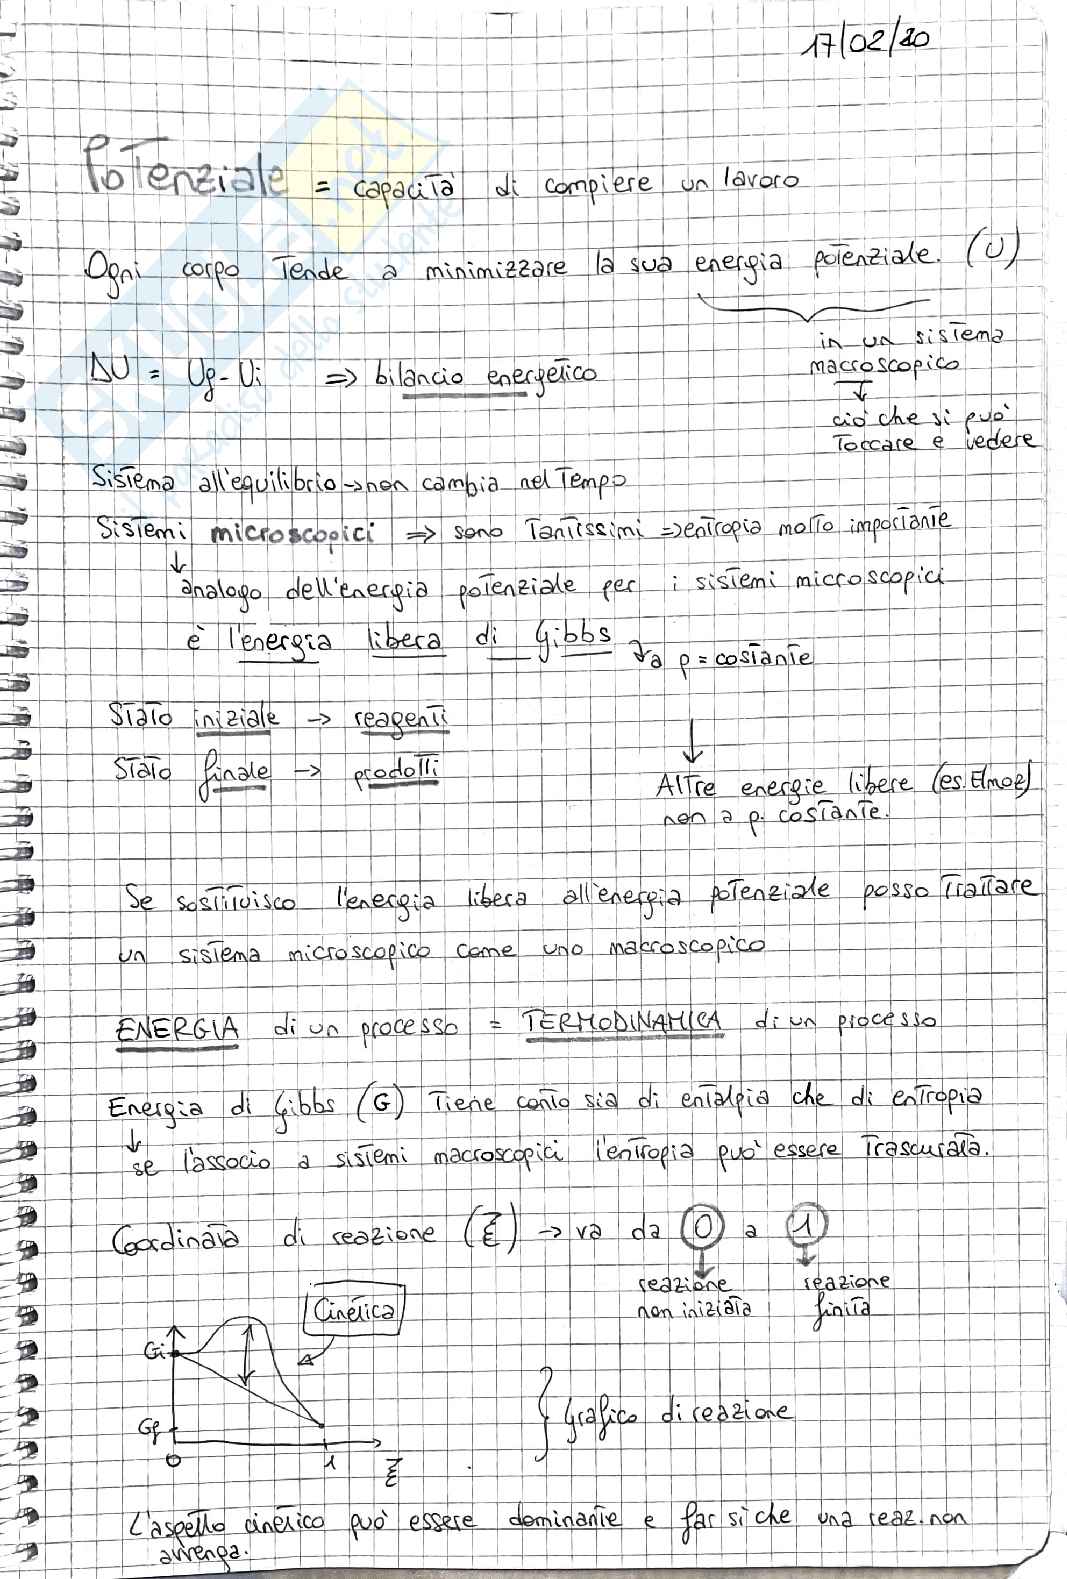 17/02/20
Potenziale = capacità di compiere un lavoro
Ogni corpo tende a minimizzare la sua energia potenziale. (U)
in un sistema
macroscopico
ΔU = Uf - Ui => bilancio energetico
ciò che si può
toccare e vedere
Sistema all'equilibrio → non cambia nel tempo
Sistemi microscopici => sono tantissimi => entropia molto importante
↓
analogo dell'energia potenziale per i sistemi microscopici
è l'energia libera di Gibbs
↳ a p = costante
Stato iniziale → reagenti
Stato finale → prodotti
Altre energie libere (es. Elmoz)
non a p. costante.
Se sostituisco l'energia libera all'energia potenziale posso trattare
un sistema microscopico come uno macroscopico
ENERGIA di un processo = TERMODINAMICA di un processo
Energia di Gibbs (G) tiene conto sia di entalpia che di entropia
↓
se l'associo a sistemi macroscopici l'entropia può essere trascurata.
Coordinata di reazione (ξ) → va da 0 a 1
reazione
non iniziata
reazione
finita
Cinetica
Gi
Gf
0
1
ξ
Grafico di reazione
L'aspetto cinetico può essere dominante e far sì che una reaz. non
avvenga.